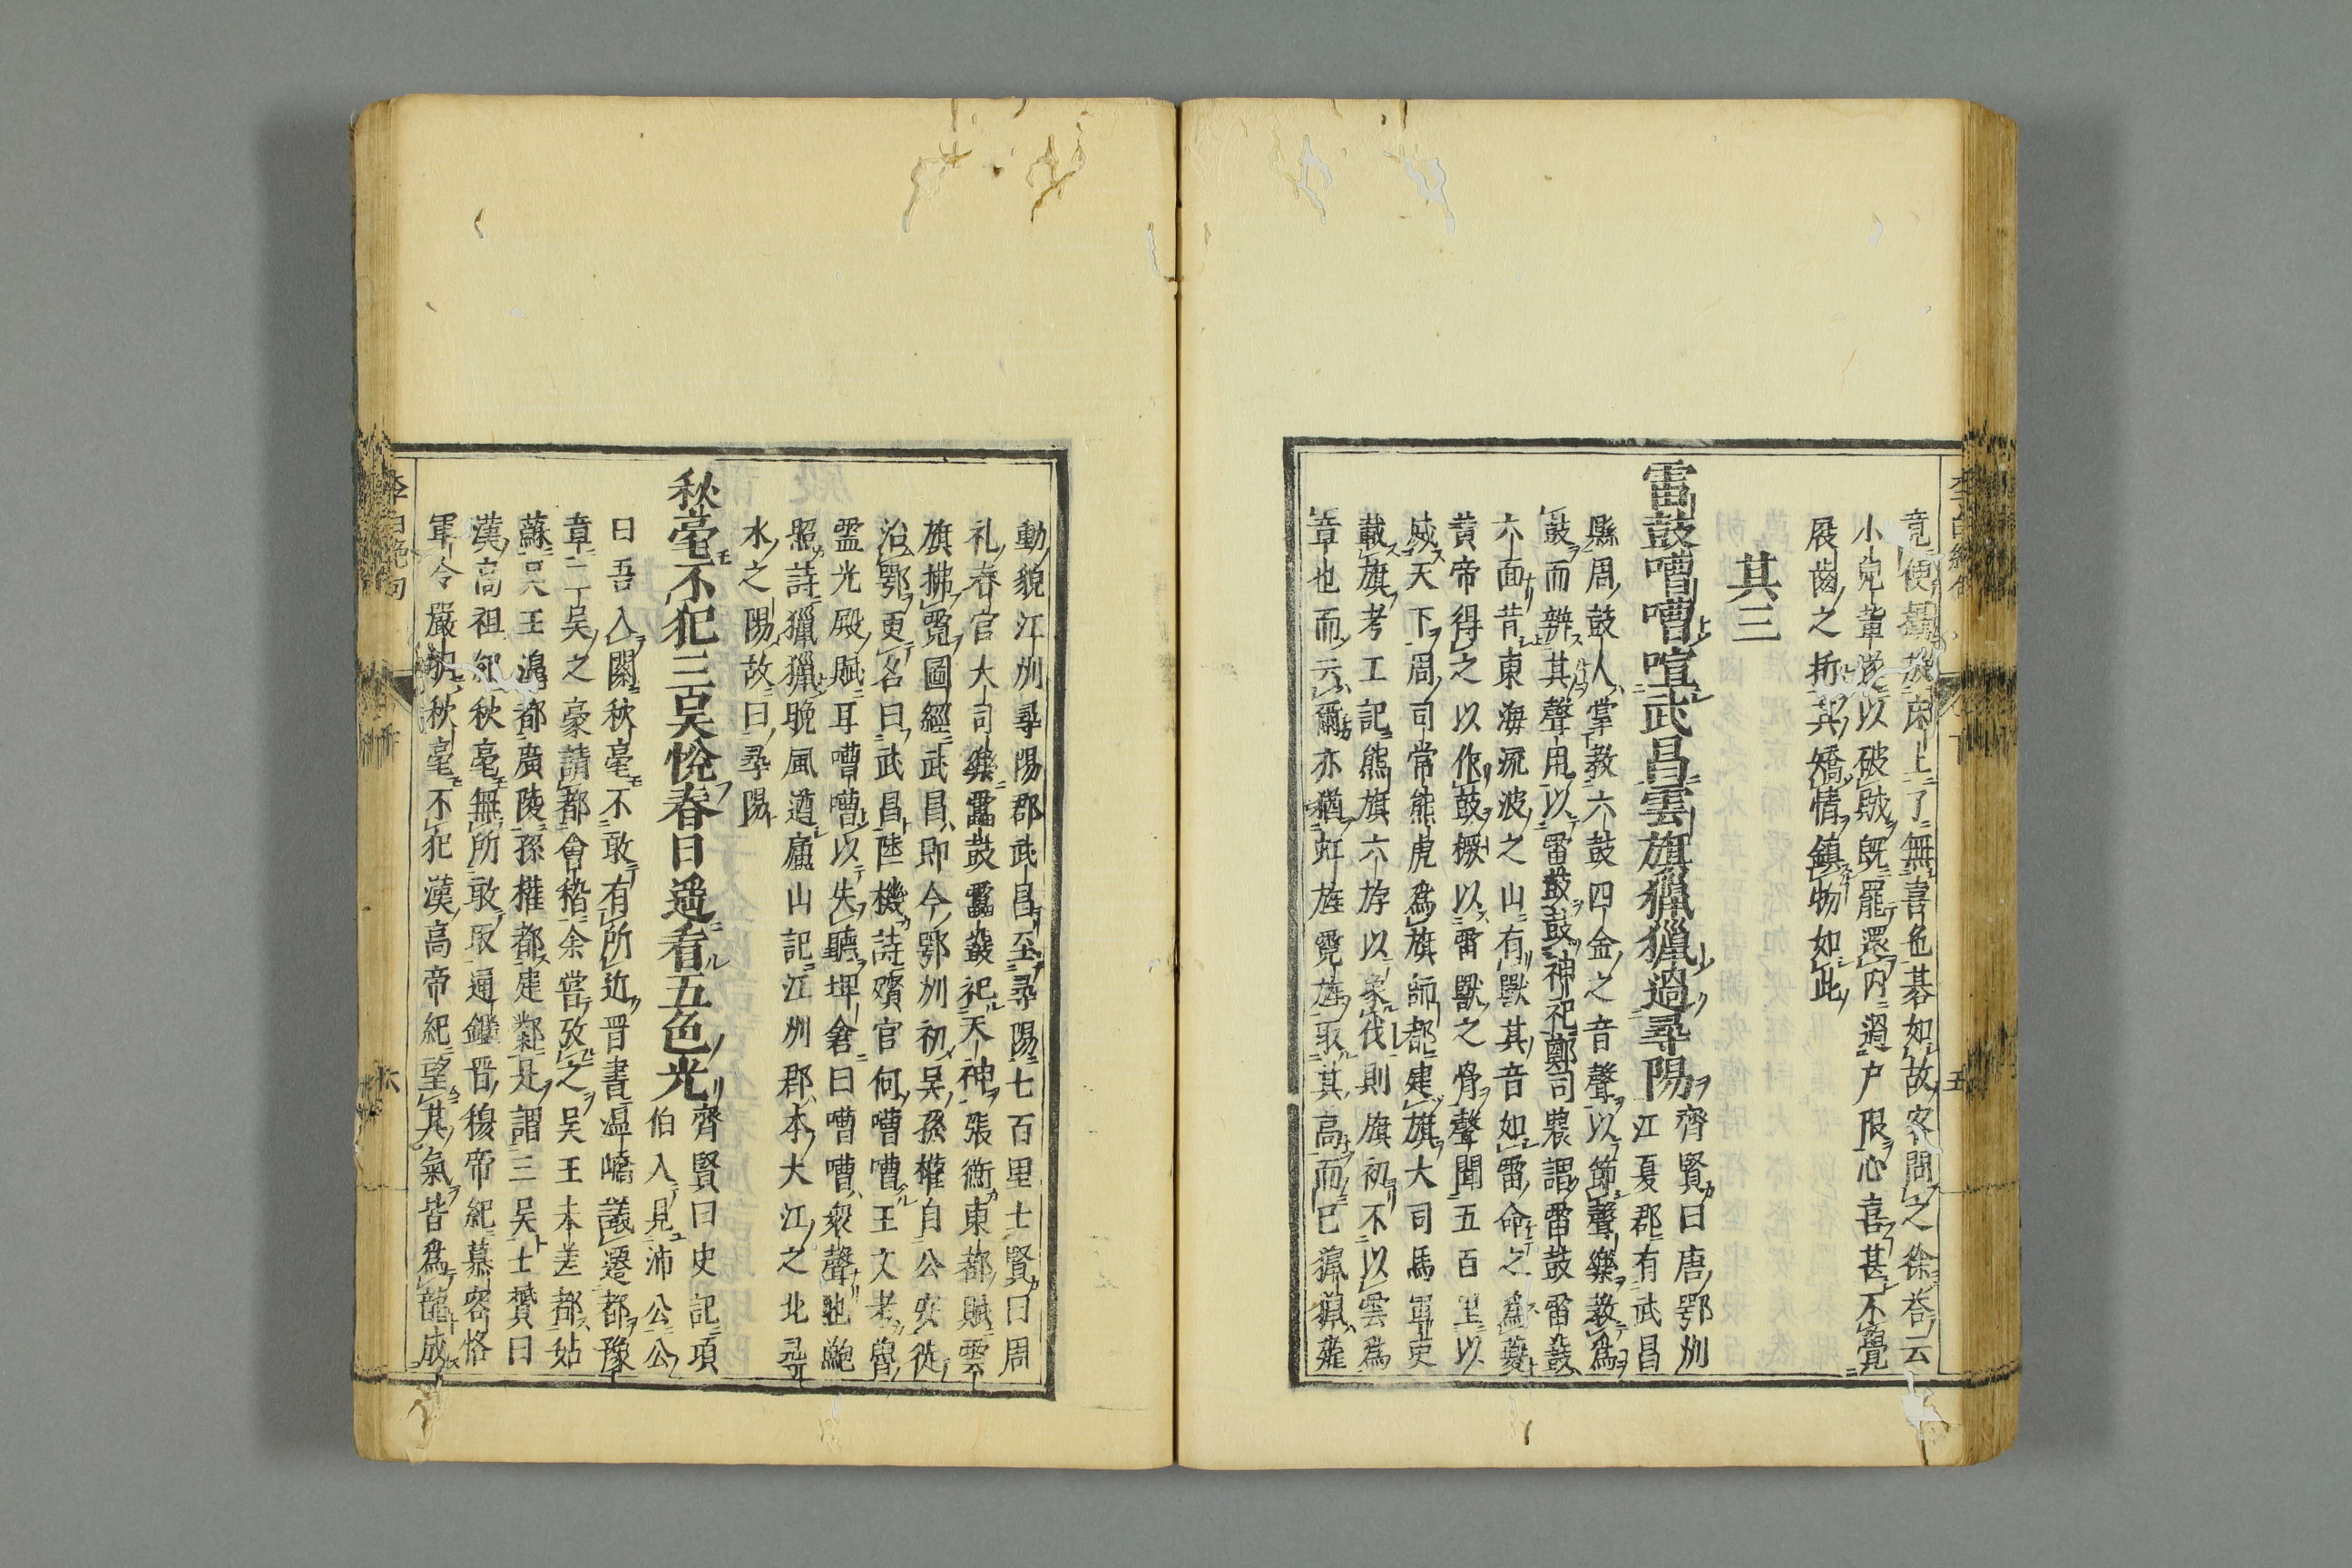 竟便攝放床上了無喜色碁如故客問之徐荅云
小兒軰遂以破賊旣罷還內過户限心喜甚不覺
屐齒之折其矯情鎮物如此
其三
雷鼓嘈嘈喧武昌雲旗獵獵過尋陽
齊賢曰唐鄂州
江夏郡有武昌
縣周鼓人掌教六鼓四金之音聲以節聲樂教爲
鼓而辨其聲用以雷鼓鼓神祀鄭司農謂雷鼓雷鼓
六面昔東海流波之山有獸其音如雷命之爲夔
黄帝得之以作鼓橛以雷獸之骨聲聞五百里以
威天下周司常熊虎爲旗師都建旗大司馬軍吏
載旗考工記熊旗六斿以象伐則旗初不以雲爲
章也而云爾亦猶虹旌霓旌取其高而已獵獵雜
動貌江州尋陽郡武昌至尋陽七百里士賢曰周
礼春官大司樂靁鼓靁鼗祀天神張衡東都賦雲
旗拂霓圖經武昌即今鄂州初吳孫權自公安徙
治鄂更名曰武昌陸機詩殯官何嘈嘈王文考魯
靈光殿賦耳嘈嘈以失聽埤倉曰嘈嘈衆聲也鮑
照詩獵獵晚風遒廬山記江州郡本大江之北尋
水之陽故曰尋陽
秋毫不犯三吳悅春日遥看五色光
齊賢曰史記項
伯入見沛公公
曰吾入關秋毫不敢有所近晋書温嶠議遷都豫
章二丁吳之豪請都會稽余嘗攷之吳王夫差都姑
蘇吳王濞都廣陵孫權都建鄴是謂三吳士贇曰
漢高祖紀秋毫無所敢取通鑑晋穆帝紀慕容恪
軍令嚴秋毫不犯漢高帝紀望其氣皆爲龍成
李白絶句
五
六